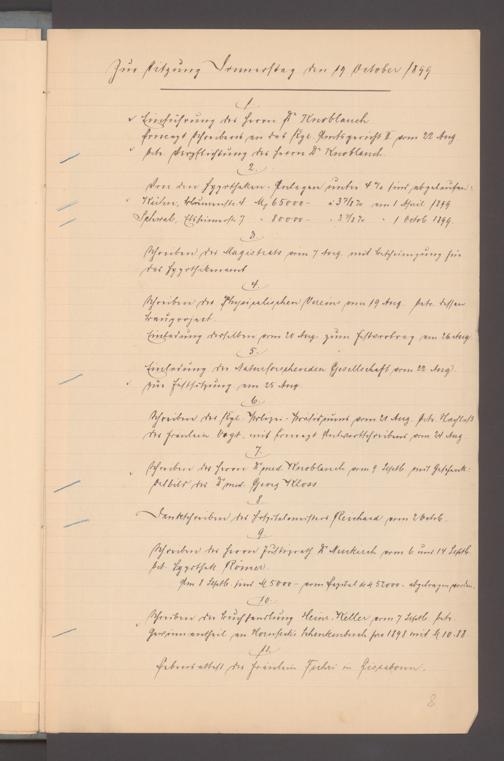 Zur Sitzung Donnerstag den 19 October 1899
1.
Einführung des Herrn Dr Knoblauch
Concept Schreibens an das Kgl. Amtsgericht II vom 22 Aug
betr. Verpflichtung des Herrn Dr Knoblauch
2.
Von den Hypotheken-Anlagen unter 4 % sind abgelaufen:
Blumenstr. 4 M 65000 - à 3 7/8 % am 1 April 1899
7 " 80000 - " 3 7/8 % " 1 Octob 1899.
3
Schreiben des Magistrats vom 7 Aug. mit Bescheinigung für
das Hypothekenamt
4.
Schreiben des Physicalischen Vereins vom 19 Aug betr. dessen
Bauproject
Einladung desselben vom 20 Aug zum Festvortrag am 26 Aug
5.
Einladung der Naturforschenden Gesellschaft vom 22 Aug
zur Festsitzung am 25 Aug
6.
Schreiben des Kgl. Polizei-Präsidiums vom 21 Aug betr. Nachlaß
des Fräulein Vogt, mit Concept Antwortschreibens vom 24 Aug
7.
Schreiben des Herrn Dr med. Knoblauch vom 9 Septb mit Geschenk:
Oelbild des Dr med. Georg Kloss
8
Dankschreiben des Hospitalmeisters Reinhard vom 2 Octob
9.
Schreiben des Herrn Justizrath Dr vom 6 und 14 Septb
bet. Hypothek Römer.
Am 8 Septb sind M 5000 - vom Capital à M 52000 - abgetragen worden.
10.
Schreiben der Buchhandlung Heinr. Keller vom 7 Septb betr.
Gewinnantheil an Schenkenbuch pro 1898 mit M 10.88
11.
Lebensattest des Fräulein in
8